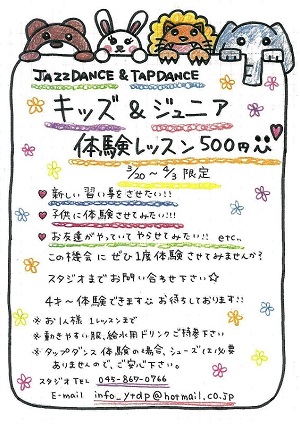 JAZZDANCE & TAPDANCE
キッズ & ジュニア
体験レッスン 500円
3/20 ~ 4/3 限定
新しい習い事をさせたい!!
子供に体験させてみたい!!!
お友達がやっていてやらせてみたい!! etc..
この機会にぜひ1度体験させてみませんか?
スタジオまでお問い合わせ下さい☆
4才~体験できます お待ちしております!!
※お1人様 1レッスンまで
※動きやすい服、給水用ドリンクご持参下さい
※タップダンス体験の場合、シューズは必要
ありませんので、ご安心下さい。
スタジオTEL 045-867-0766
E-mail info_ytdp@hotmail.co.jp